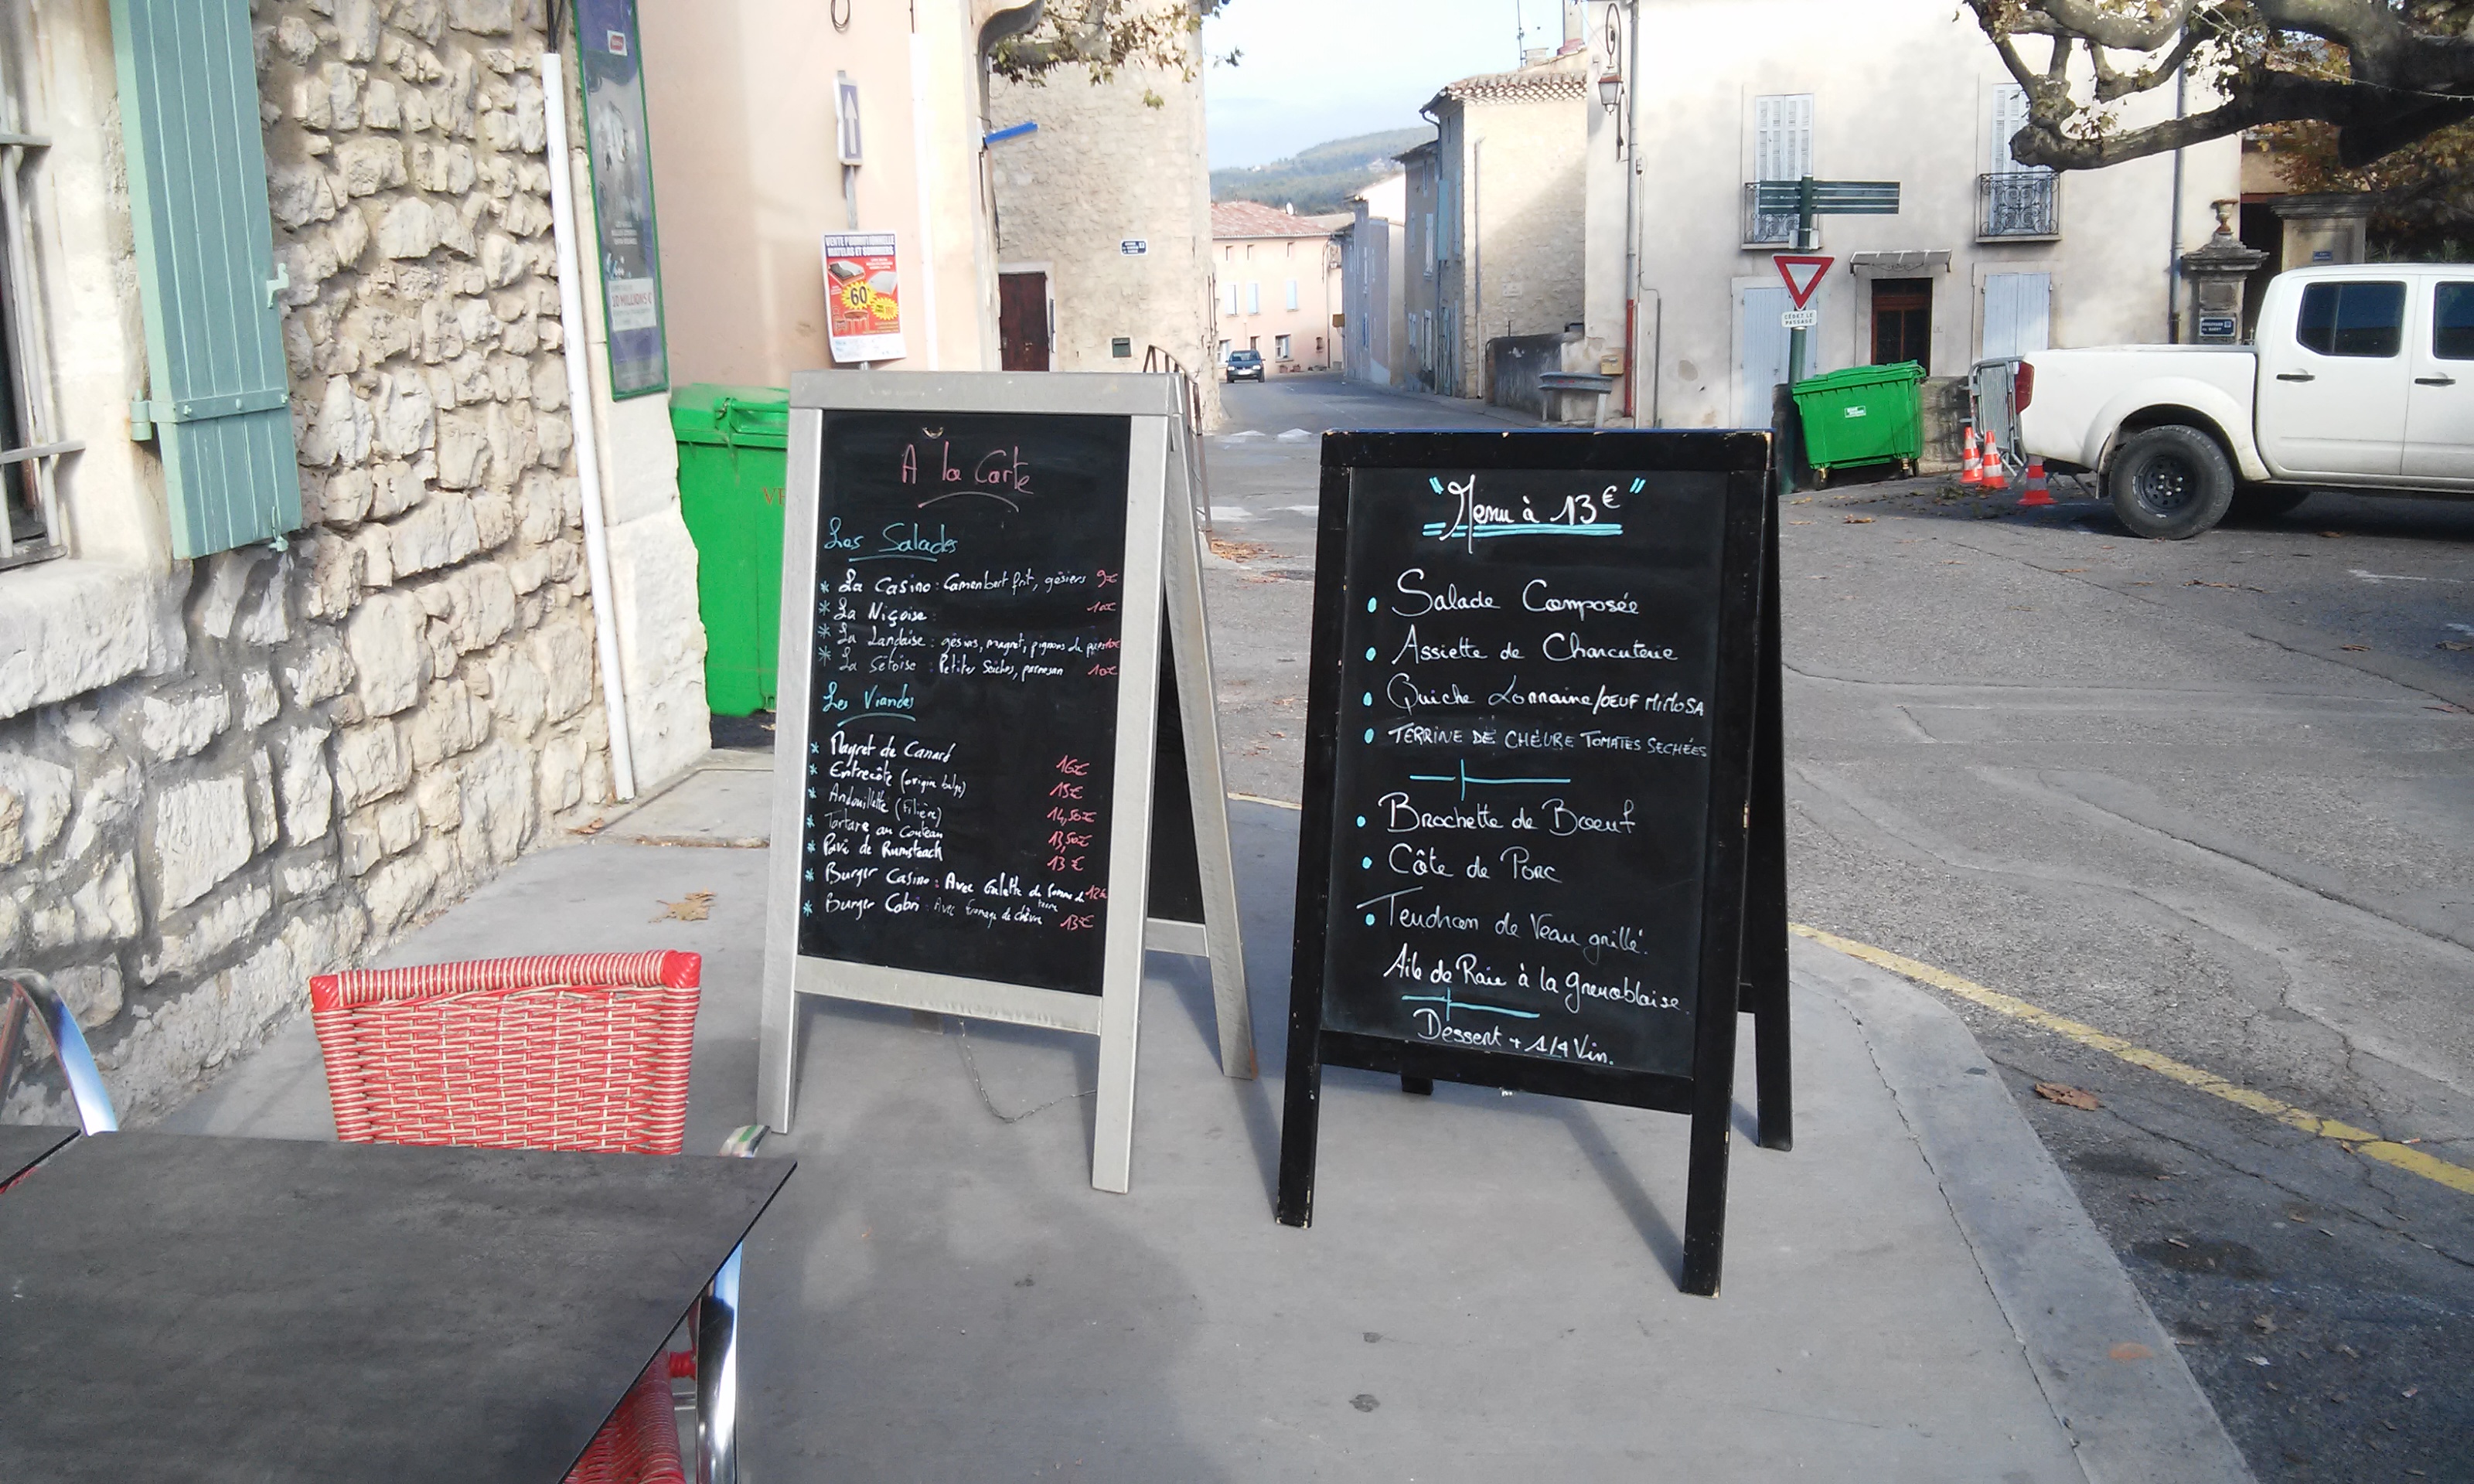 10 MILLIONS €
VENTE PROMOTIONNELLE
MATELAS ET
60
CÉDEZ LE
PASSAGE
A la Carte
Les Salades
* La Casino : Camenbert frit, gésiers 9€
* La Niçoise : 10€
* La Landaise : gésiers, magret, pignons de pin
* La Setoise : Petites Seiches, parmesan 10€
Les Viandes
* Magret de Canard 16€
* Entrecôte (origine belge) 15€
* Andouillette (Filière) 14,50€
* Tartare au Couteau 13,50€
* Pavé de Rumsteack 13€
* Burger Casino : Avec Galette de Pomme de terre 12€
* Burger Cabri : Avec fromage de chèvre 13€
"Menu à 13€"
• Salade Composée
• Assiette de Charcuterie
• Quiche Lorraine/OEUF MIMOSA
• TERRINE DE CHÈVRE TOMATES SECHÉES
• Brochette de Bœuf
• Côte de Porc
• Tendron de Veau grillé.
Aile de Raie à la Grenobloise
Dessert + 1/4 Vin.